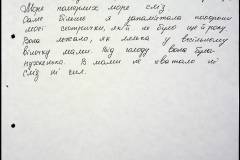 Море померлих море сліз
Саме більше я запам'ятала похорони
моєї сестрички, якій не було ще й року.
Вона лежала, як лялька у весільному
вільочку мами. Від голоду вона була
пухленька. В мами не хватало ні
сліз ні сил.